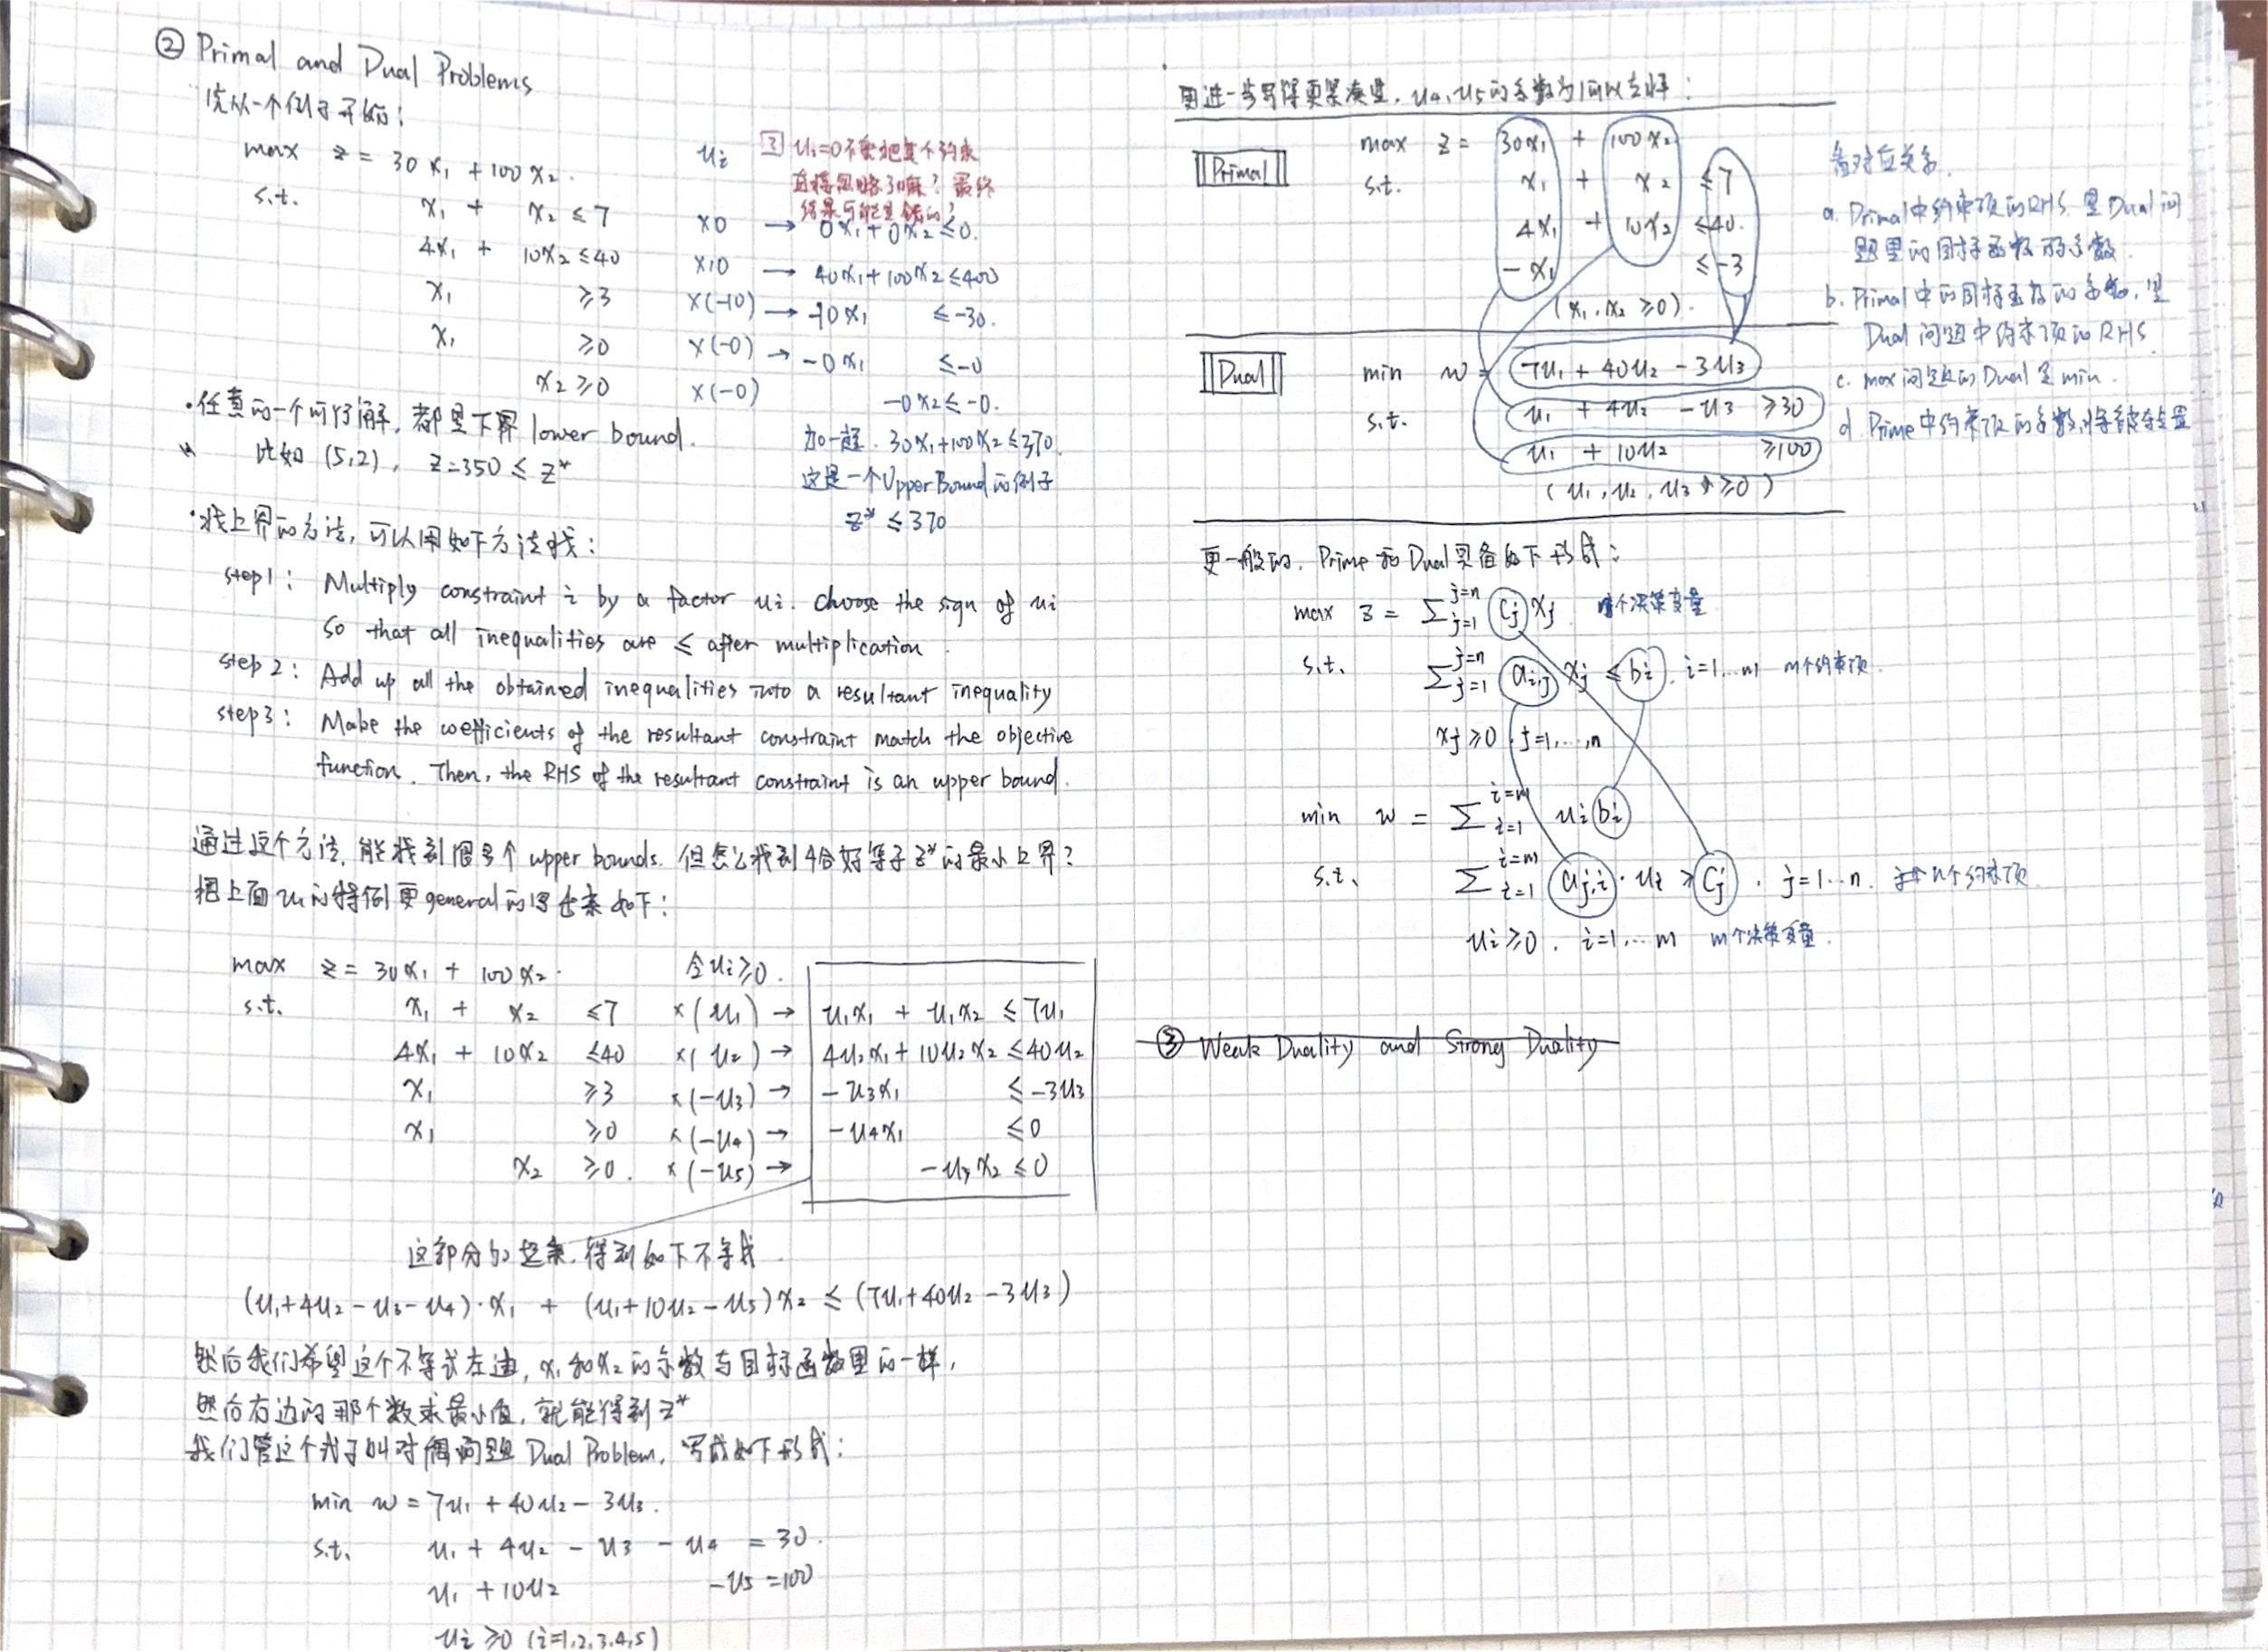 ② Primal and Dual Problems
先从一个例子开始:
max z = 30x₁ + 100x₂.
s.t. x₁ + x₂ ≤ 7
4x₁ + 10x₂ ≤ 40
x₁ ≥ 3
x₁ ≥ 0
x₂ ≥ 0
uᵢ
x0 → 0x₁ + 0x₂ ≤ 0.
x10 → 40x₁ + 100x₂ ≤ 400
x(-10) → -10x₁ ≤ -30.
x(-0) → -0x₁ ≤ -0
x(-0) -0x₂ ≤ -0.
加一起. 30x₁+100x₂ ≤ 370.
这是一个Upper Bound的例子
z* ≤ 370
uᵢ=0不会把某个约束
直接忽略了嘛? 最终
结果可能是错的?
·任意的一个可行解, 都是下界 lower bound.
比如 (5,2), z=350 ≤ z*
·找上界的方法, 可以用如下方法找:
step1: Multiply constraint i by a factor uᵢ. Choose the sign of uᵢ
so that all inequalities are ≤ after multiplication.
step 2: Add up all the obtained inequalities into a resultant inequality
step3: Make the coefficients of the resultant constraint match the objective
function. Then, the RHS of the resultant constraint is an upper bound.
通过这个方法, 能找到很多个 upper bounds. 但怎么找到恰好等于z*的最小上界?
把上面uᵢ的特例更general的写出来如下:
max z = 30x₁ + 100x₂. 令uᵢ≥0.
s.t. x₁ + x₂ ≤7 x(u₁) → u₁x₁ + u₁x₂ ≤ 7u₁
4x₁ + 10x₂ ≤40 x(u₂) → 4u₂x₁ + 10u₂x₂ ≤ 40u₂
x₁ ≥3 x(-u₃) → -u₃x₁ ≤ -3u₃
x₁ ≥0 x(-u₄) → -u₄x₁ ≤ 0
x₂ ≥0. x(-u₅) → -u₅x₂ ≤ 0
这部分加起来, 得到如下不等式
(u₁+4u₂-u₃-u₄)·x₁ + (u₁+10u₂-u₅)x₂ ≤ (7u₁+40u₂-3u₃)
然后我们希望这个不等式左边, x₁和x₂的系数与目标函数里的一样,
然后右边的那个数求最小值, 就能得到z*
我们管这个式子叫对偶问题 Dual Problem, 写成如下形式:
min w = 7u₁ + 40u₂ - 3u₃.
s.t. u₁ + 4u₂ - u₃ - u₄ = 30.
u₁ + 10u₂ -u₅ = 100
uᵢ ≥0 (i=1,2,3,4,5)
更进一步写得更紧凑些, u₄,u₅的系数为1可以去掉:
Primal max z = 30x₁ + 100x₂
s.t. x₁ + x₂ ≤7
4x₁ + 10x₂ ≤40.
-x₁ ≤-3
(x₁, x₂ ≥0).
Dual min w = 7u₁ + 40u₂ - 3u₃
s.t. u₁ + 4u₂ - u₃ ≥30
u₁ + 10u₂ ≥100
(u₁, u₂, u₃ ≥0)
看对应关系.
a. Primal中约束项的RHS, 是Dual问
题里的目标函数的系数.
b. Primal中的目标函数的系数, 是
Dual问题中约束项的RHS
c. max问题的Dual是min.
d. Prime中约束项的系数, 将被转置
更一般的, Prime和Dual具备如下形式:
max z = Σⱼ₌₁ʲ⁼ⁿ cⱼ xⱼ. n个决策变量
s.t. Σⱼ₌₁ʲ⁼ⁿ aᵢ,ⱼ xⱼ ≤ bᵢ, i=1...m m个约束项.
xⱼ ≥0, j=1,...,n
min w = Σᵢ₌₁ⁱ⁼ᵐ uᵢ bᵢ
s.t. Σᵢ₌₁ⁱ⁼ᵐ aⱼ,ᵢ · uᵢ ≥ cⱼ, j=1...n. n个约束项
uᵢ≥0, i=1,...m m个决策变量.
③ Weak Duality and Strong Duality